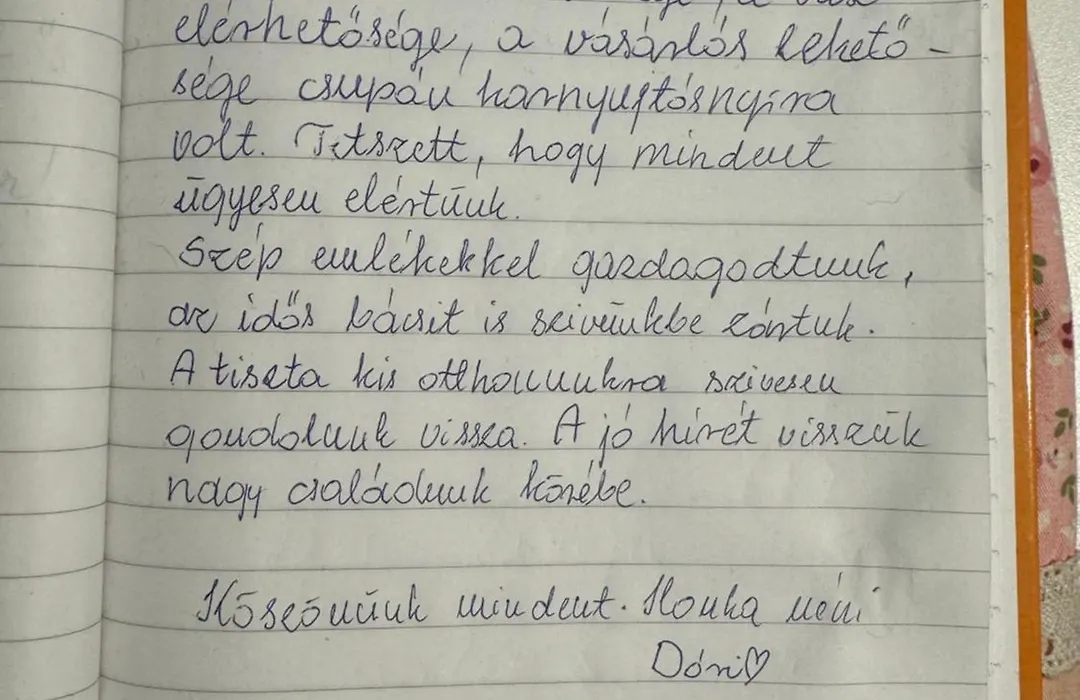 elérhetősége, a vásárlás lehető-
sége csupán karnyujtásnyira
volt. Tetszett, hogy mindent
ügyesen elértünk.
Szép emlékekkel gazdagodtunk,
az idős bácsit is szivünkbe zártuk.
A tiszta kis otthonunkra szivesen
gondolunk vissza. A jó hírét visszük
nagy családunk körébe.
Köszönünk mindent. Ilonka néni
Dóri♡